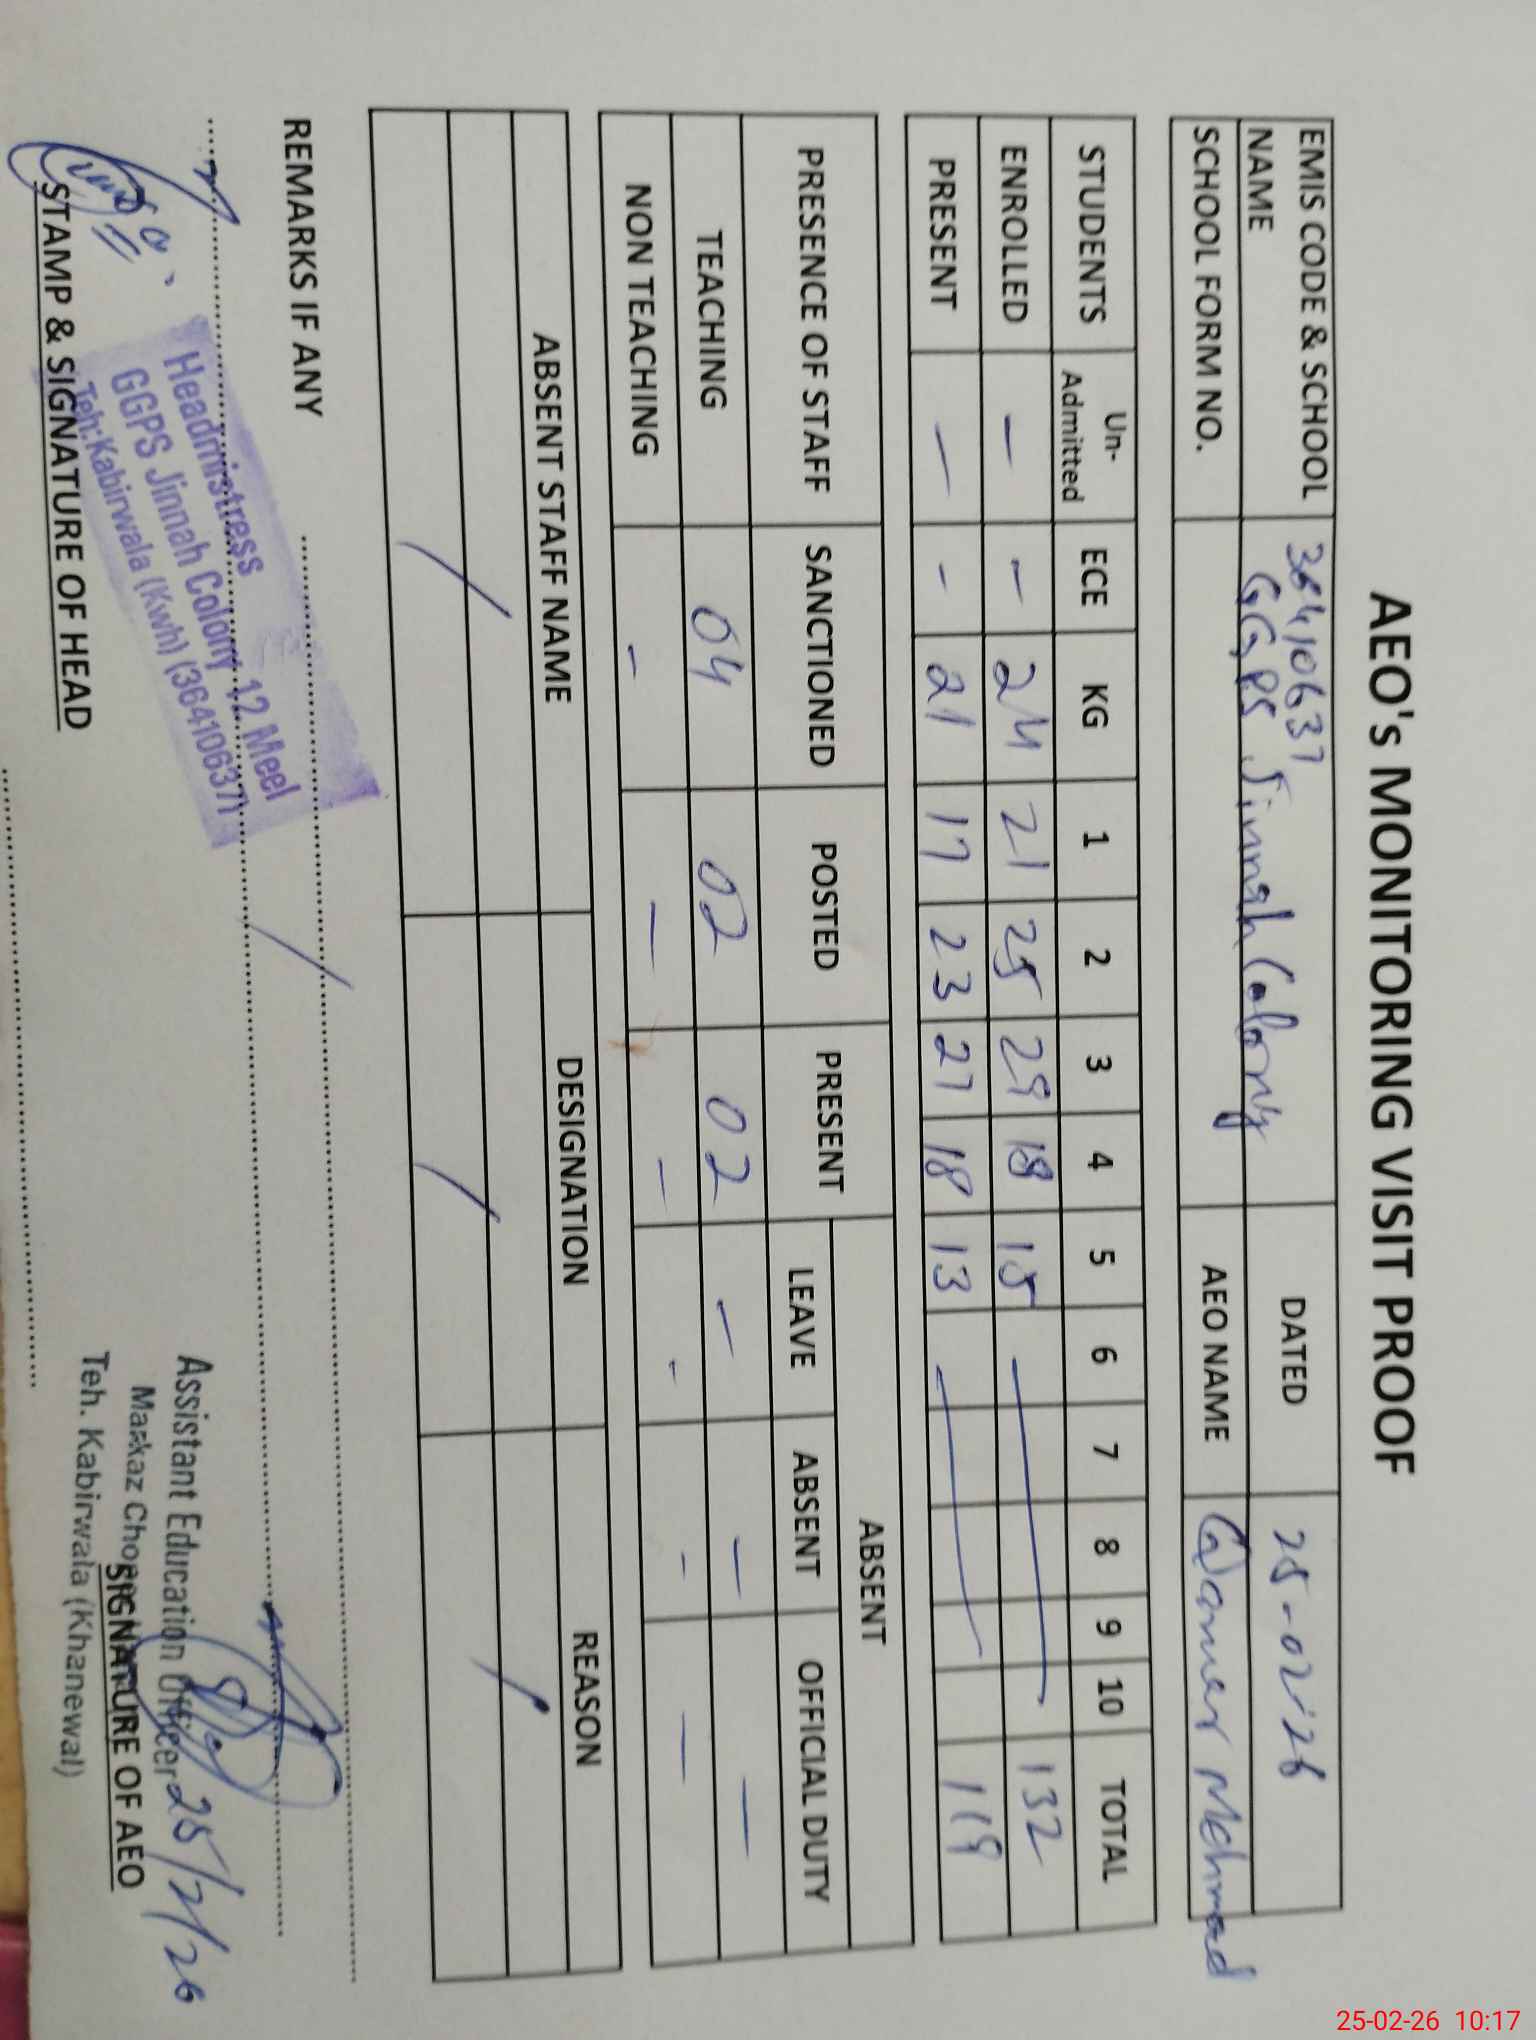 AEO's MONITORING VISIT PROOF
EMIS CODE & SCHOOL NAME 36410637 GGPS Jinnah Colony DATED 25-02-26
SCHOOL FORM NO. AEO NAME Qamer Mehmood
STUDENTS Un-Admitted ECE KG 1 2 3 4 5 6 7 8 9 10 TOTAL
ENROLLED — — 24 21 25 29 18 15 — 132
PRESENT — — 21 17 23 27 18 13 — 119
PRESENCE OF STAFF SANCTIONED POSTED PRESENT ABSENT
LEAVE ABSENT OFFICIAL DUTY
TEACHING 04 02 02 — — —
NON TEACHING - — — - - —
ABSENT STAFF NAME DESIGNATION REASON
REMARKS IF ANY
Headmistress
GGPS Jinnah Colony 12 Meel
Teh:Kabirwala (Kwh) (36410637)
STAMP & SIGNATURE OF HEAD
Assistant Education Officer 25/2/26
Markaz
Teh. Kabirwala (Khanewal)
SIGNATURE OF AEO
25-02-26 10:17